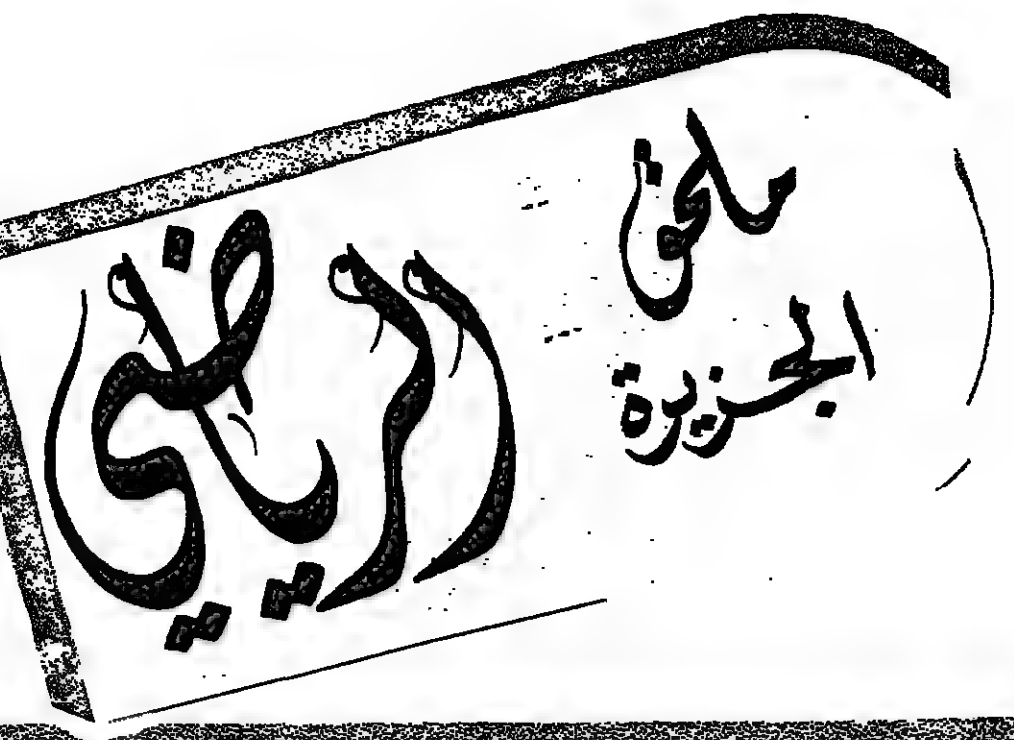 ملحق
الجزيرة
الرياضي